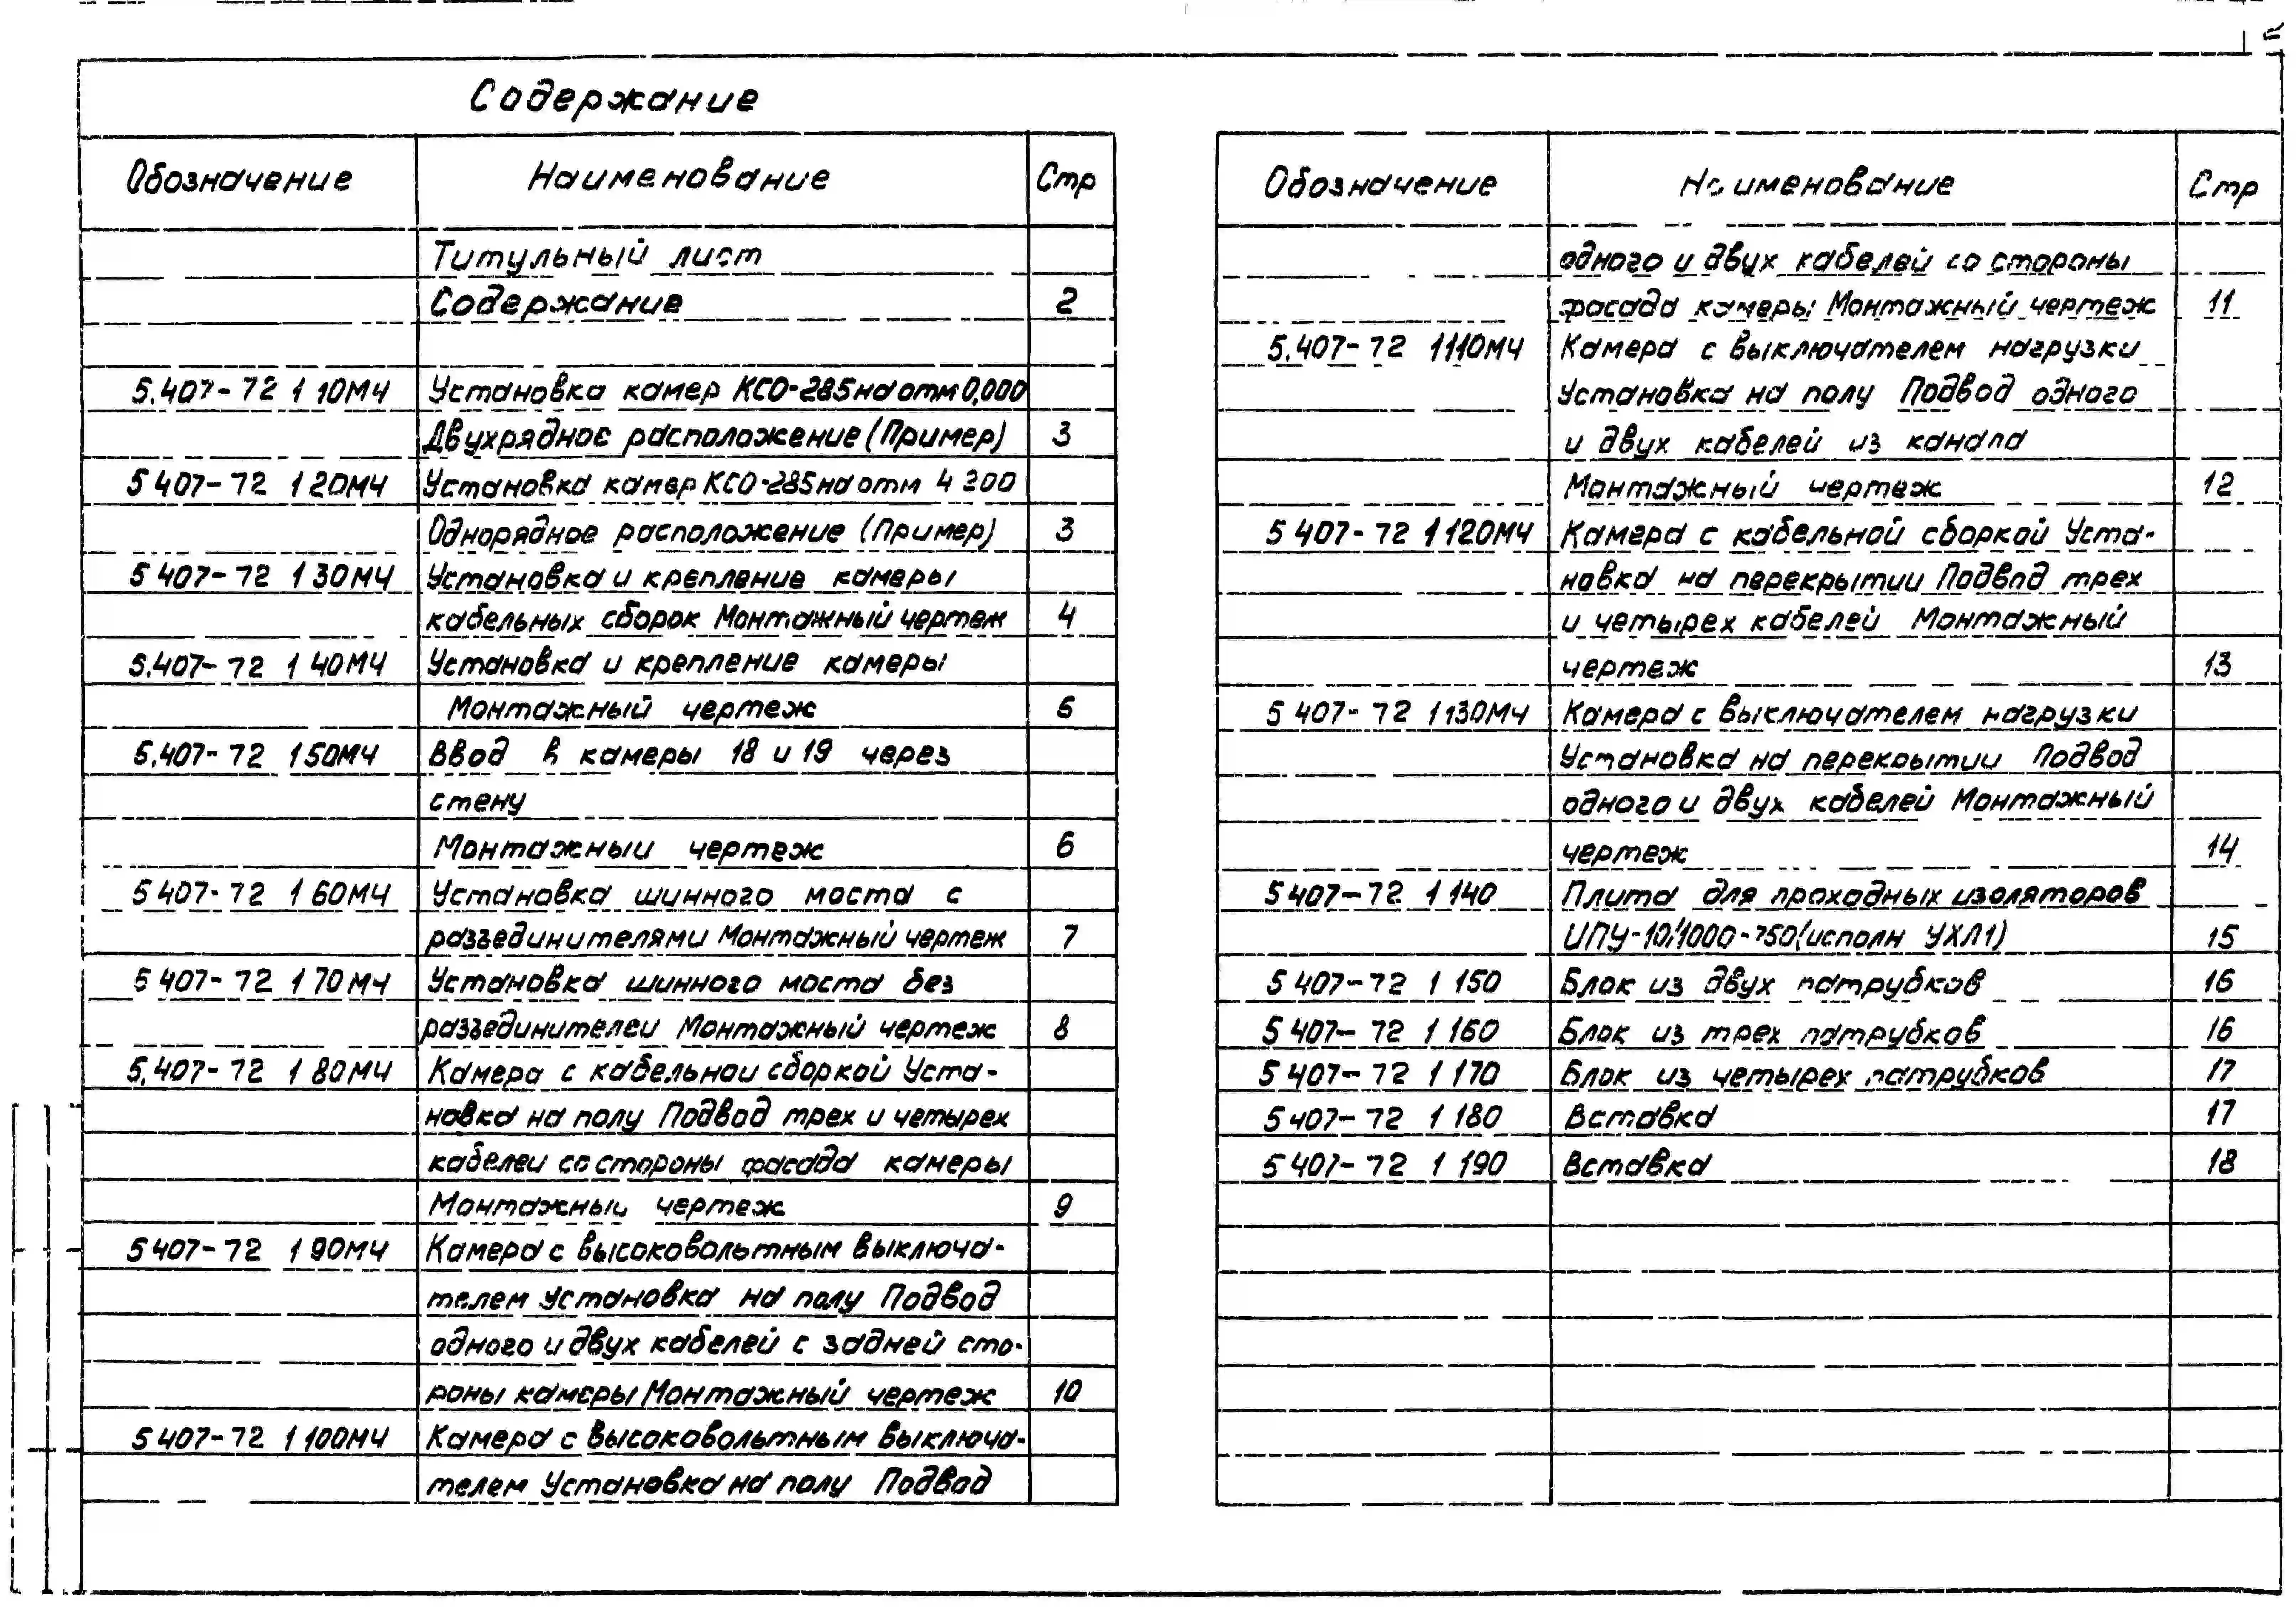 Содержание
Обозначение Наименование Стр
Титульный лист
Содержание 2
5.407-72 1 10МЧ Установка камер КСО-285 на отм 0,000
Двухрядное расположение (Пример) 3
5 407-72 1 20МЧ Установка камер КСО-285 на отм 4 200
Однорядное расположение (Пример) 3
5 407-72 1 30МЧ Установка и крепление камеры
кабельных сборок Монтажный чертеж 4
5.407-72 1 40МЧ Установка и крепление камеры
Монтажный чертеж 5
5.407-72 1 50МЧ Ввод в камеры 18 и 19 через
стену
Монтажный чертеж 6
5 407-72 1 60МЧ Установка шинного моста с
разъединителями Монтажный чертеж 7
5 407-72 1 70МЧ Установка шинного моста без
разъединителей Монтажный чертеж 8
5.407-72 1 80МЧ Камера с кабельной сборкой Уста-
новка на полу Подвод трех и четырех
кабелей со стороны фасада камеры
Монтажный чертеж 9
5 407-72 1 90МЧ Камера с высоковольтным выключа-
телем Установка на полу Подвод
одного и двух кабелей с задней сто-
роны камеры Монтажный чертеж 10
5 407-72 1 100МЧ Камера с высоковольтным выключа-
телем Установка на полу Подвод
Обозначение Наименование Стр
одного и двух кабелей со стороны
фасада камеры Монтажный чертеж 11
5.407-72 1 110МЧ Камера с выключателем нагрузки
Установка на полу Подвод одного
и двух кабелей из канала
Монтажный чертеж 12
5 407-72 1 120МЧ Камера с кабельной сборкой Уста-
новка на перекрытии Подвод трех
и четырех кабелей Монтажный
чертеж 13
5 407-72 1 130МЧ Камера с выключателем нагрузки
Установка на перекрытии Подвод
одного и двух кабелей Монтажный
чертеж 14
5 407-72 1 140 Плита для проходных изоляторов
ИПУ-10/1000-750 (исполн УХЛ1) 15
5 407-72 1 150 Блок из двух патрубков 16
5 407-72 1 160 Блок из трех патрубков 16
5 407-72 1 170 Блок из четырех патрубков 17
5 407-72 1 180 Вставка 17
5 407-72 1 190 Вставка 18